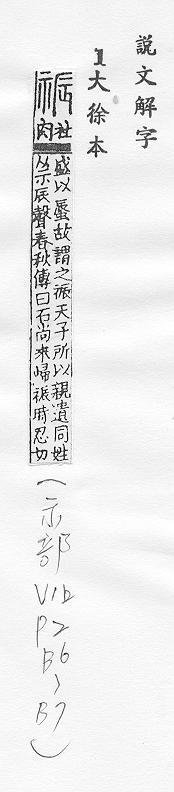 說文解字
1大徐本
祳
社肉
盛以蜃故謂之祳天子所以親遺同姓
从示辰聲春秋傳曰石尚來歸祳時忍切
(示部
P2
B6、
B7)